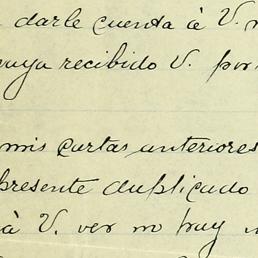 darle cuenta à V.
haya recibido V. por
mis cartas anteriores
presente duplicado
à V. ver no hay